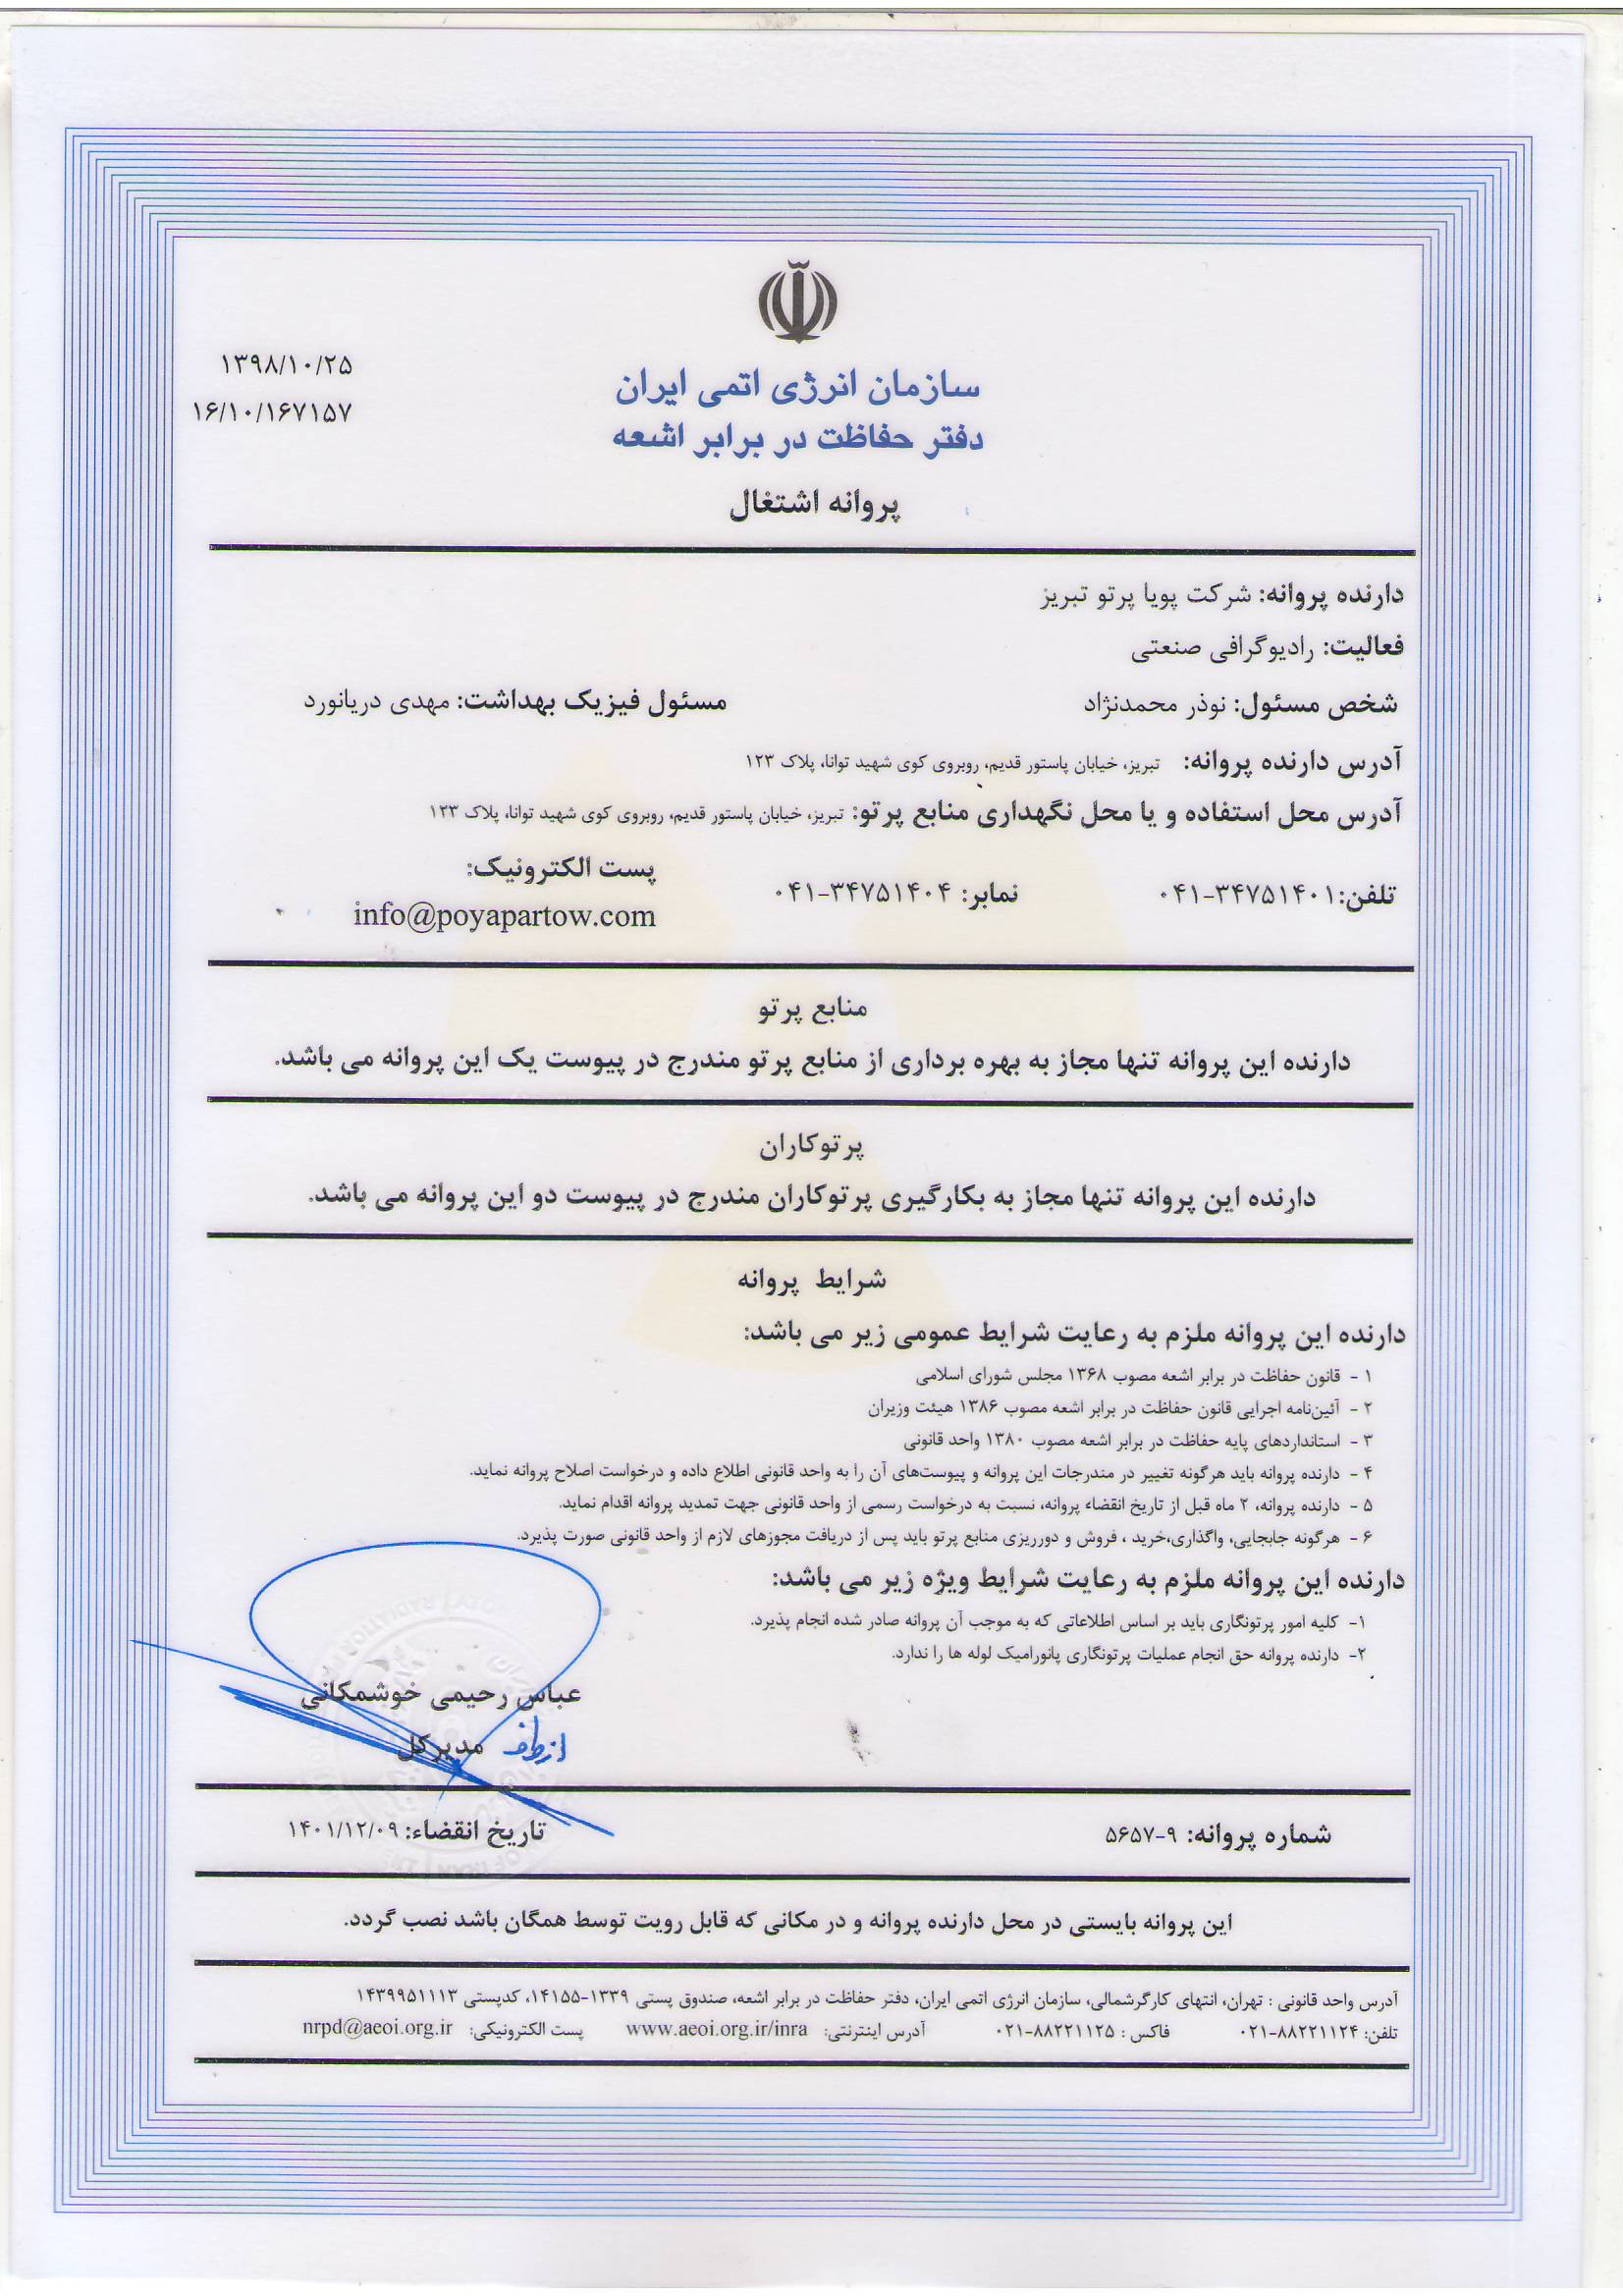 ۱۳۹۸/۱۰/۲۵
۱۶/۱۰/۱۶۷۱۵۷
سازمان انرژی اتمی ایران
دفتر حفاظت در برابر اشعه
پروانه اشتغال
دارنده پروانه: شرکت پویا پرتو تبریز
فعالیت: رادیوگرافی صنعتی
شخص مسئول: نوذر محمدنژاد مسئول فیزیک بهداشت: مهدی دریانورد
آدرس دارنده پروانه: تبریز، خیابان پاستور قدیم، روبروی کوی شهید توانا، پلاک ۱۲۳
آدرس محل استفاده و یا محل نگهداری منابع پرتو: تبریز، خیابان پاستور قدیم، روبروی کوی شهید توانا، پلاک ۱۲۳
تلفن: ۰۴۱-۳۴۷۵۱۴۰۱ نمابر: ۰۴۱-۳۴۷۵۱۴۰۴ پست الکترونیک:
info@poyapartow.com
منابع پرتو
دارنده این پروانه تنها مجاز به بهره برداری از منابع پرتو مندرج در پیوست یک این پروانه می باشد.
پرتوکاران
دارنده این پروانه تنها مجاز به بکارگیری پرتوکاران مندرج در پیوست دو این پروانه می باشد.
شرایط پروانه
دارنده این پروانه ملزم به رعایت شرایط عمومی زیر می باشد:
۱ - قانون حفاظت در برابر اشعه مصوب ۱۳۶۸ مجلس شورای اسلامی
۲ - آئین‌نامه اجرایی قانون حفاظت در برابر اشعه مصوب ۱۳۸۶ هیئت وزیران
۳ - استانداردهای پایه حفاظت در برابر اشعه مصوب ۱۳۸۰ واحد قانونی
۴ - دارنده پروانه باید هرگونه تغییر در مندرجات این پروانه و پیوست‌های آن را به واحد قانونی اطلاع داده و درخواست اصلاح پروانه نماید.
۵ - دارنده پروانه، ۲ ماه قبل از تاریخ انقضاء پروانه، نسبت به درخواست رسمی از واحد قانونی جهت تمدید پروانه اقدام نماید.
۶ - هرگونه جابجایی، واگذاری،خرید ، فروش و دورریزی منابع پرتو باید پس از دریافت مجوزهای لازم از واحد قانونی صورت پذیرد.
دارنده این پروانه ملزم به رعایت شرایط ویژه زیر می باشد:
۱- کلیه امور پرتونگاری باید بر اساس اطلاعاتی که به موجب آن پروانه صادر شده انجام پذیرد.
۲- دارنده پروانه حق انجام عملیات پرتونگاری پانورامیک لوله ها را ندارد.
عباس رحیمی خوشمکانی
از طرف مدیرکل
شماره پروانه: ۹-۵۶۵۷ تاریخ انقضاء: ۱۴۰۱/۱۲/۰۹
این پروانه بایستی در محل دارنده پروانه و در مکانی که قابل رویت توسط همگان باشد نصب گردد.
آدرس واحد قانونی : تهران، انتهای کارگرشمالی، سازمان انرژی اتمی ایران، دفتر حفاظت در برابر اشعه، صندوق پستی ۱۳۳۹-۱۴۱۵۵، کدپستی ۱۴۳۹۹۵۱۱۱۳
تلفن: ۰۲۱-۸۸۲۲۱۱۲۴ فاکس : ۰۲۱-۸۸۲۲۱۱۲۵ آدرس اینترنتی: www.aeoi.org.ir/inra پست الکترونیکی: nrpd@aeoi.org.ir